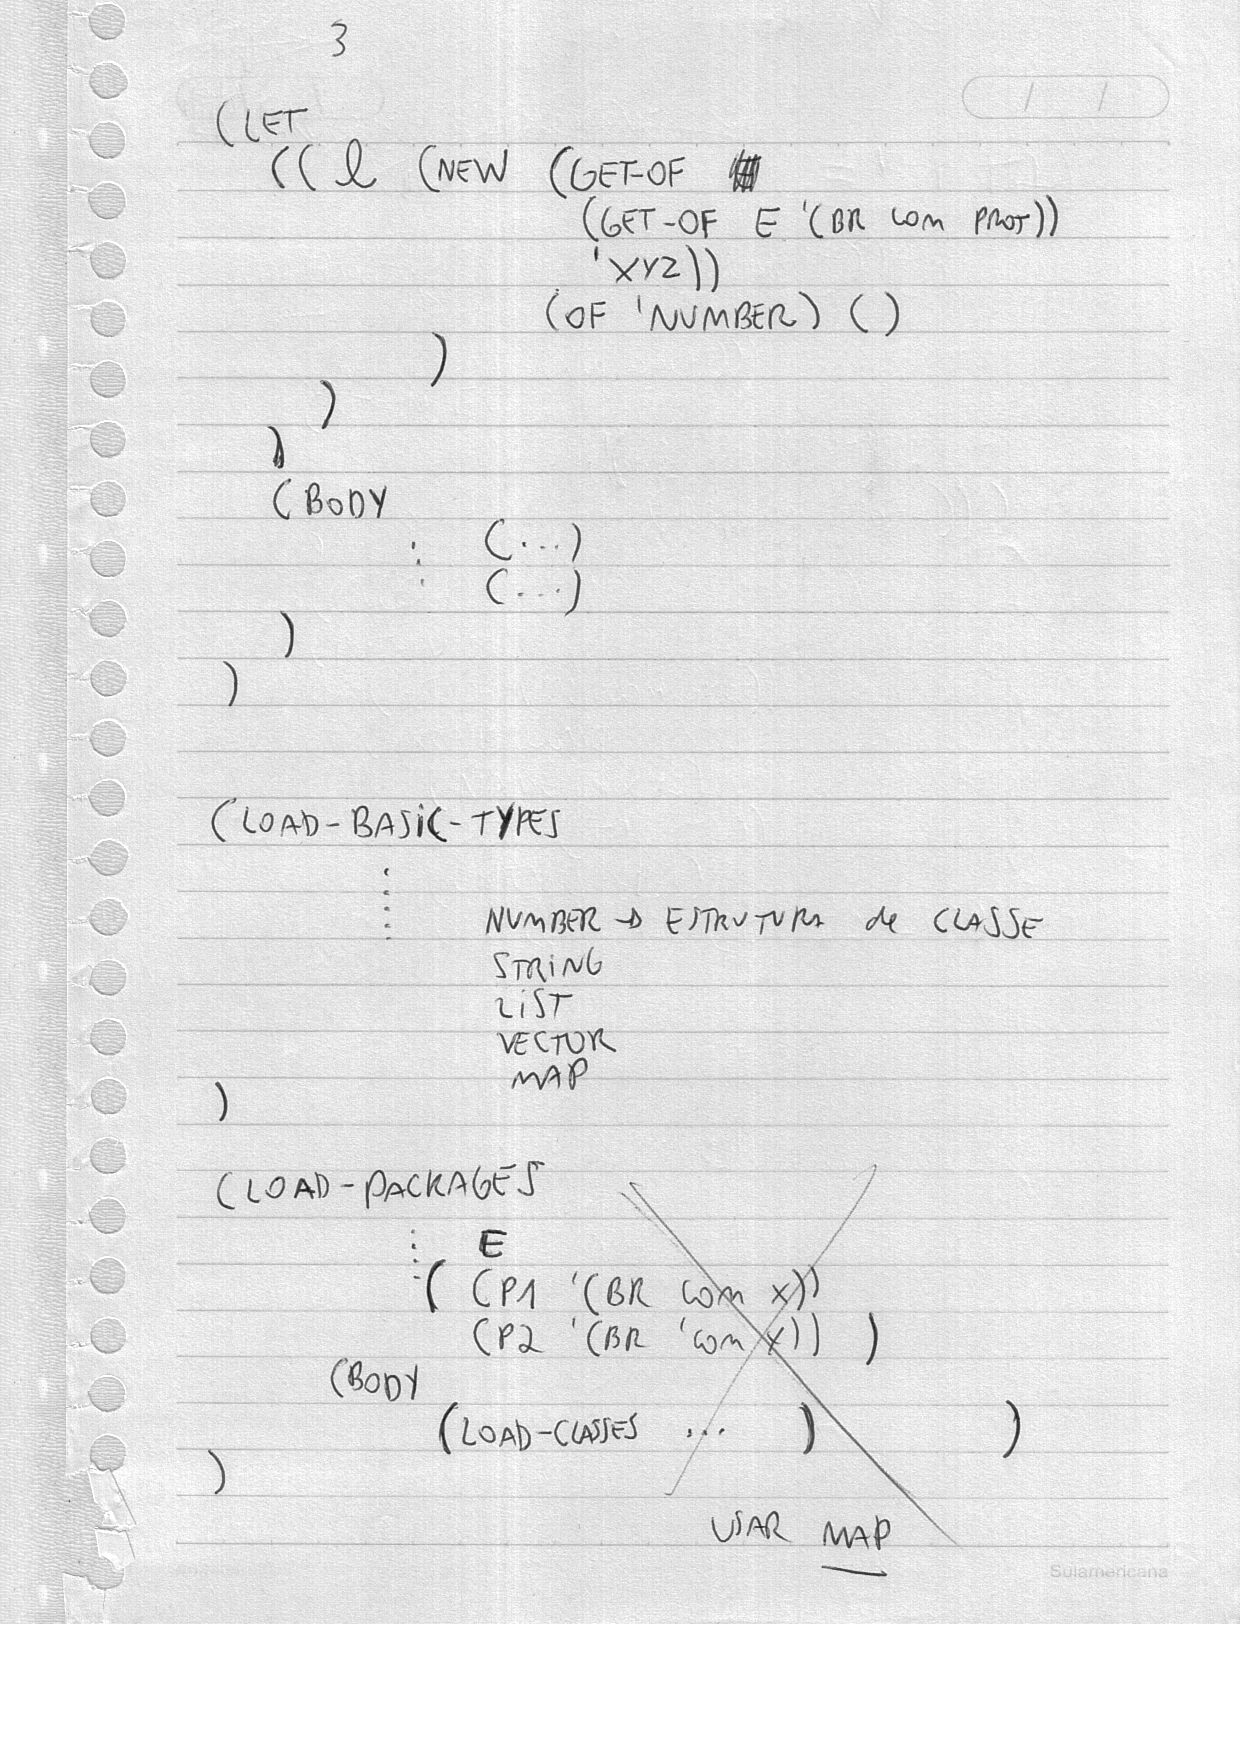 3
/ /
(LET
((l (NEW (GET-OF
(GET-OF E '(BR com PROT))
'XYZ))
(OF 'NUMBER) ()
)
)
)
(BODY
(...)
(...)
)
)
(LOAD-BASIC-TYPES
NUMBER → ESTRUTURA de CLASSE
STRING
LIST
VECTOR
MAP
)
(LOAD-PACKAGES
E
( (P1 '(BR com x))
(P2 '(BR 'com x)) )
(BODY
(LOAD-CLASSES ... ) )
)
USAR MAP
Sulamericana